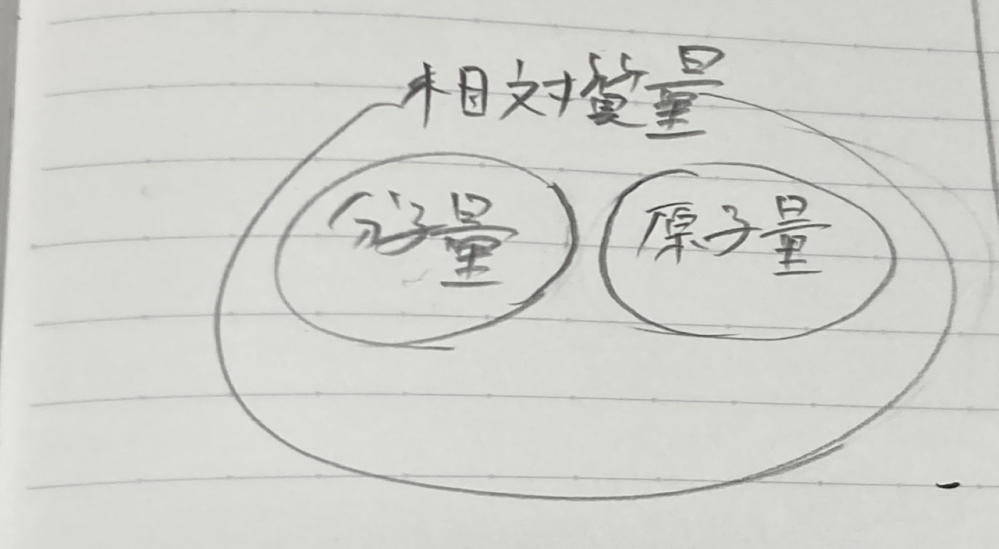 相対質量
分子量
原子量